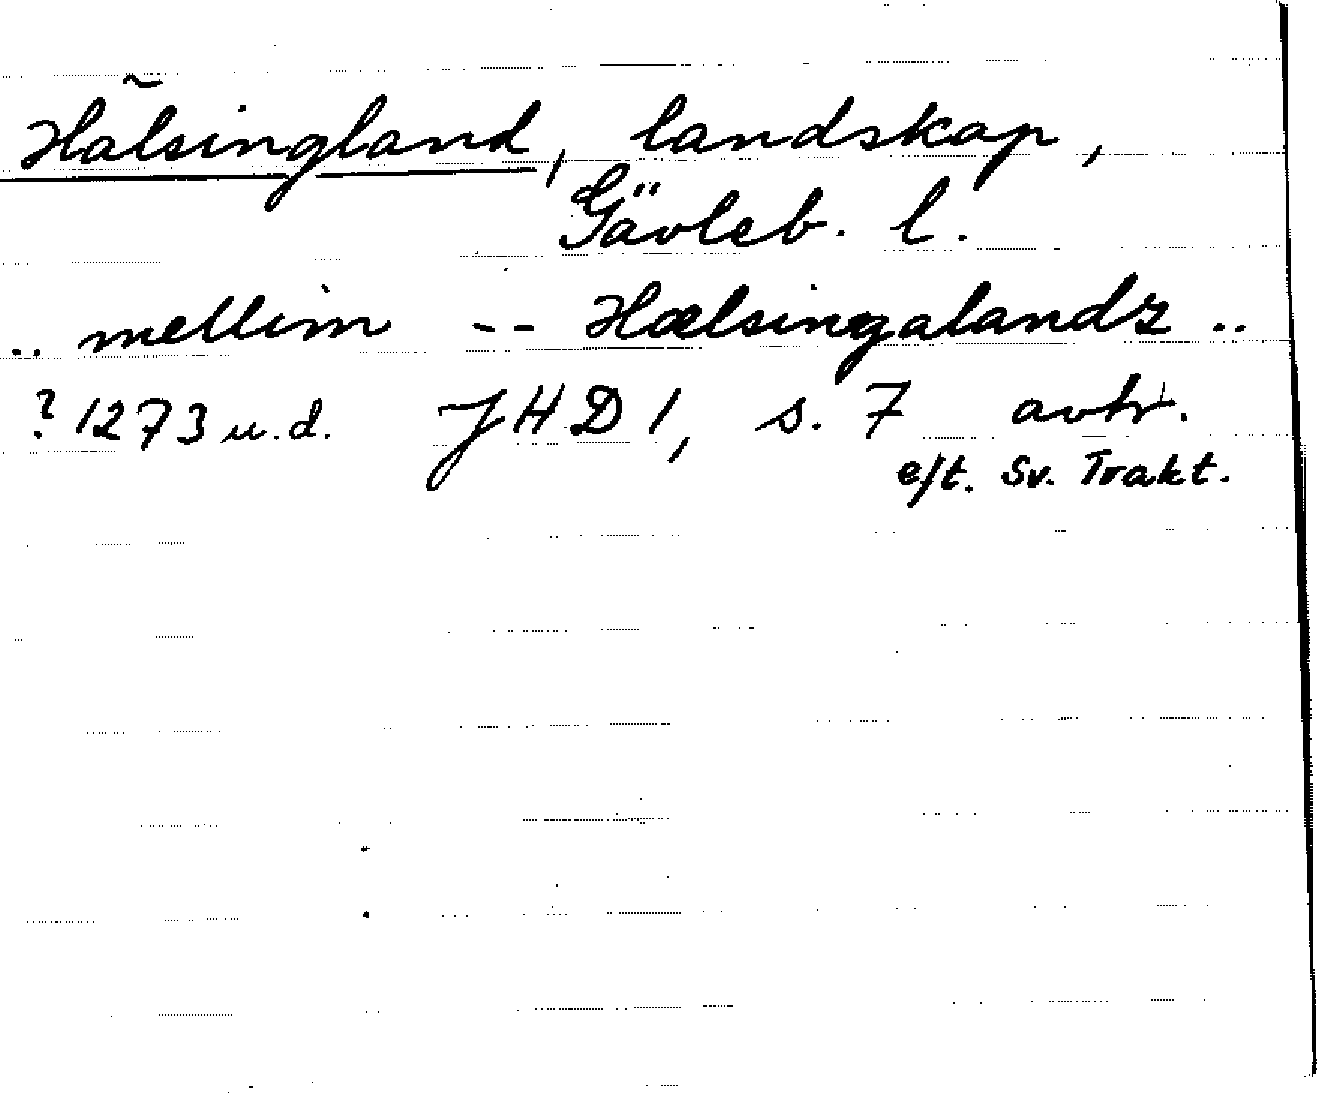 Hälsingland, landskap,
Gävleb. l.
.. mellim -- Hælsingalandz ..
? 1273 u.d. JHD 1, s. 7 avtr.
e/t. Sv. Trakt.